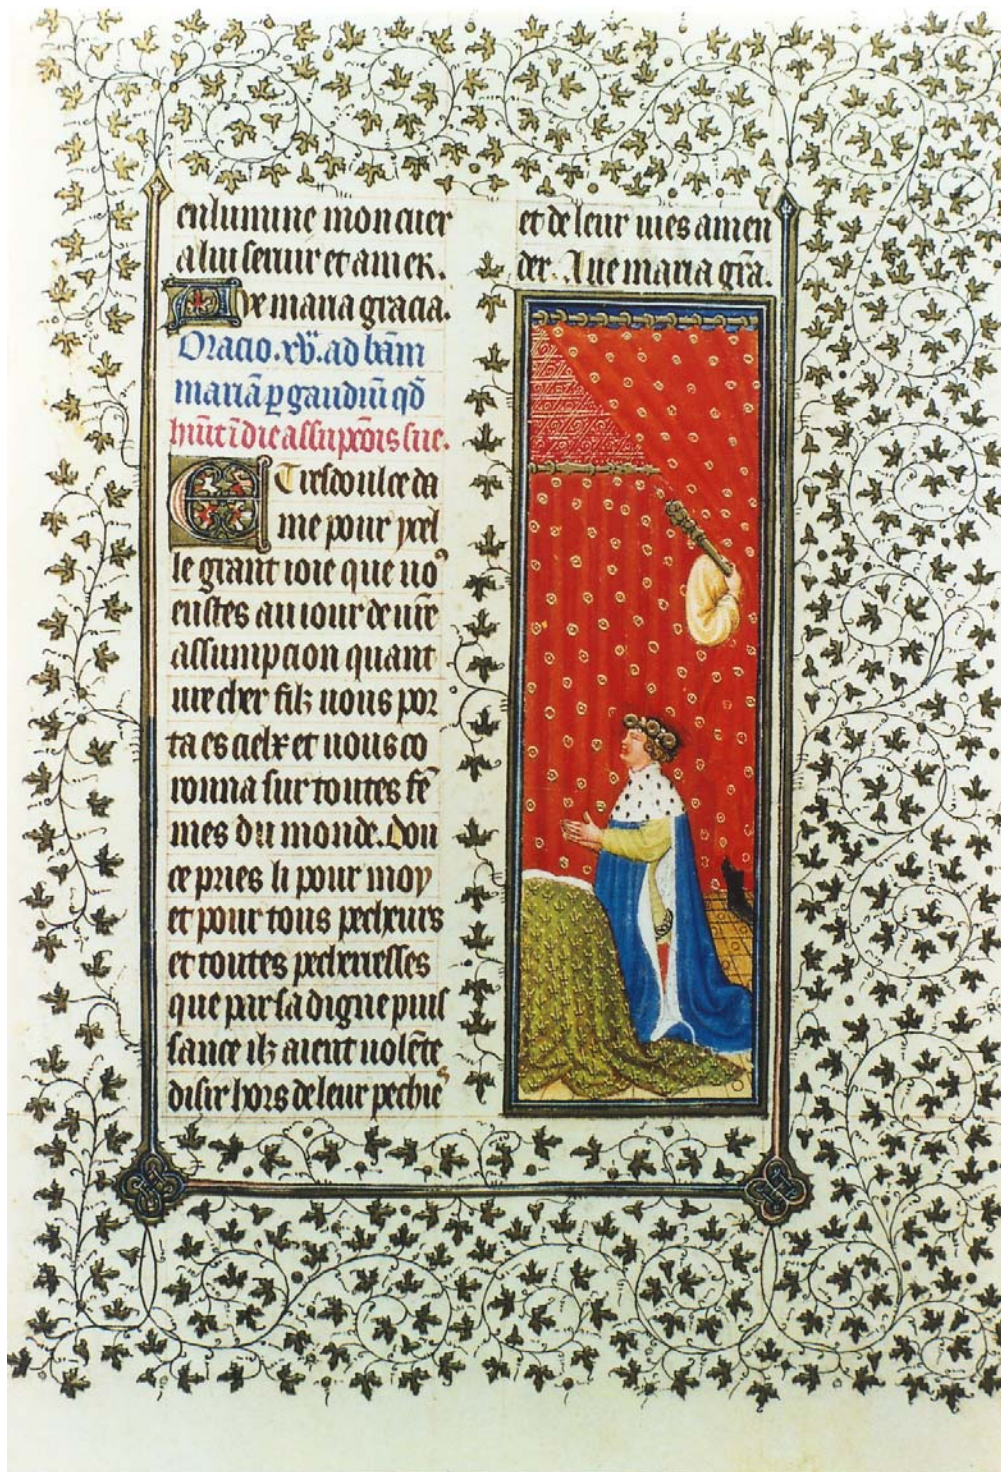 enlumine mon cuer
a lui seruir et amer.
Aue maria gracia.
Oracio .xv. ad bām
mariā p gaudiū qd̄
hūit ī die assūpcōis sue.
E tresdoulce da
me pour ycel
le grant ioie que uoꝰ
eustes au iour de ur̄e
assumpcion quant
ur̄e cher filz uous por
ta es cielx et uous co
ronna sur toutes fē
mes du monde. dou
ce pries li pour moy
et pour tous pecheurs
et toutes pecheresses
que par sa digne puis
sance ilz aient uolēte
disir hors de leur pechieˢ
et de leur uies amen
der. Aue maria gr̄a.